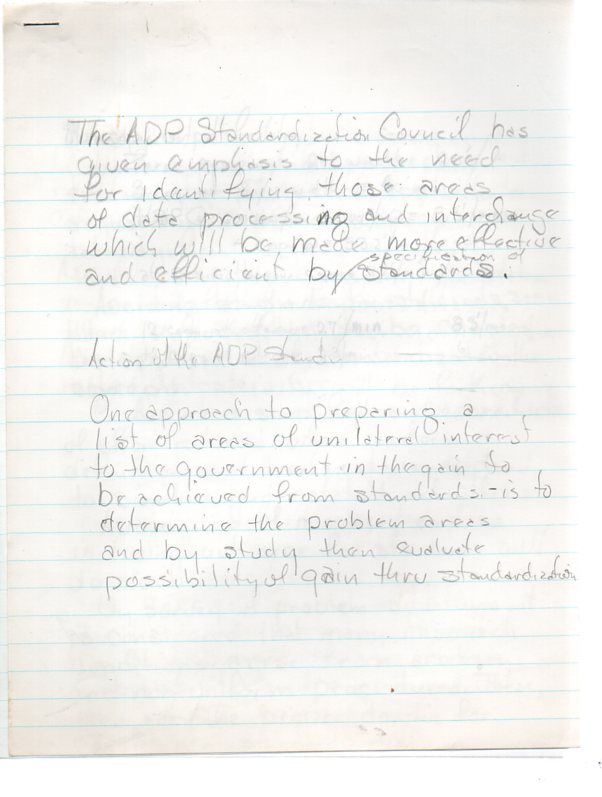 The ADP Standardization Council has
given emphasis to the need
for identifying those areas
of data processing and interchange
which will be made more effective
specification of
and efficient by standards.
Action of the ADP
One approach to preparing a
list of areas of unilateral interest
to the government in the gain to
be achieved from standards. - is to
determine the problem areas
and by study then evaluate
possibility of gain thru standardization